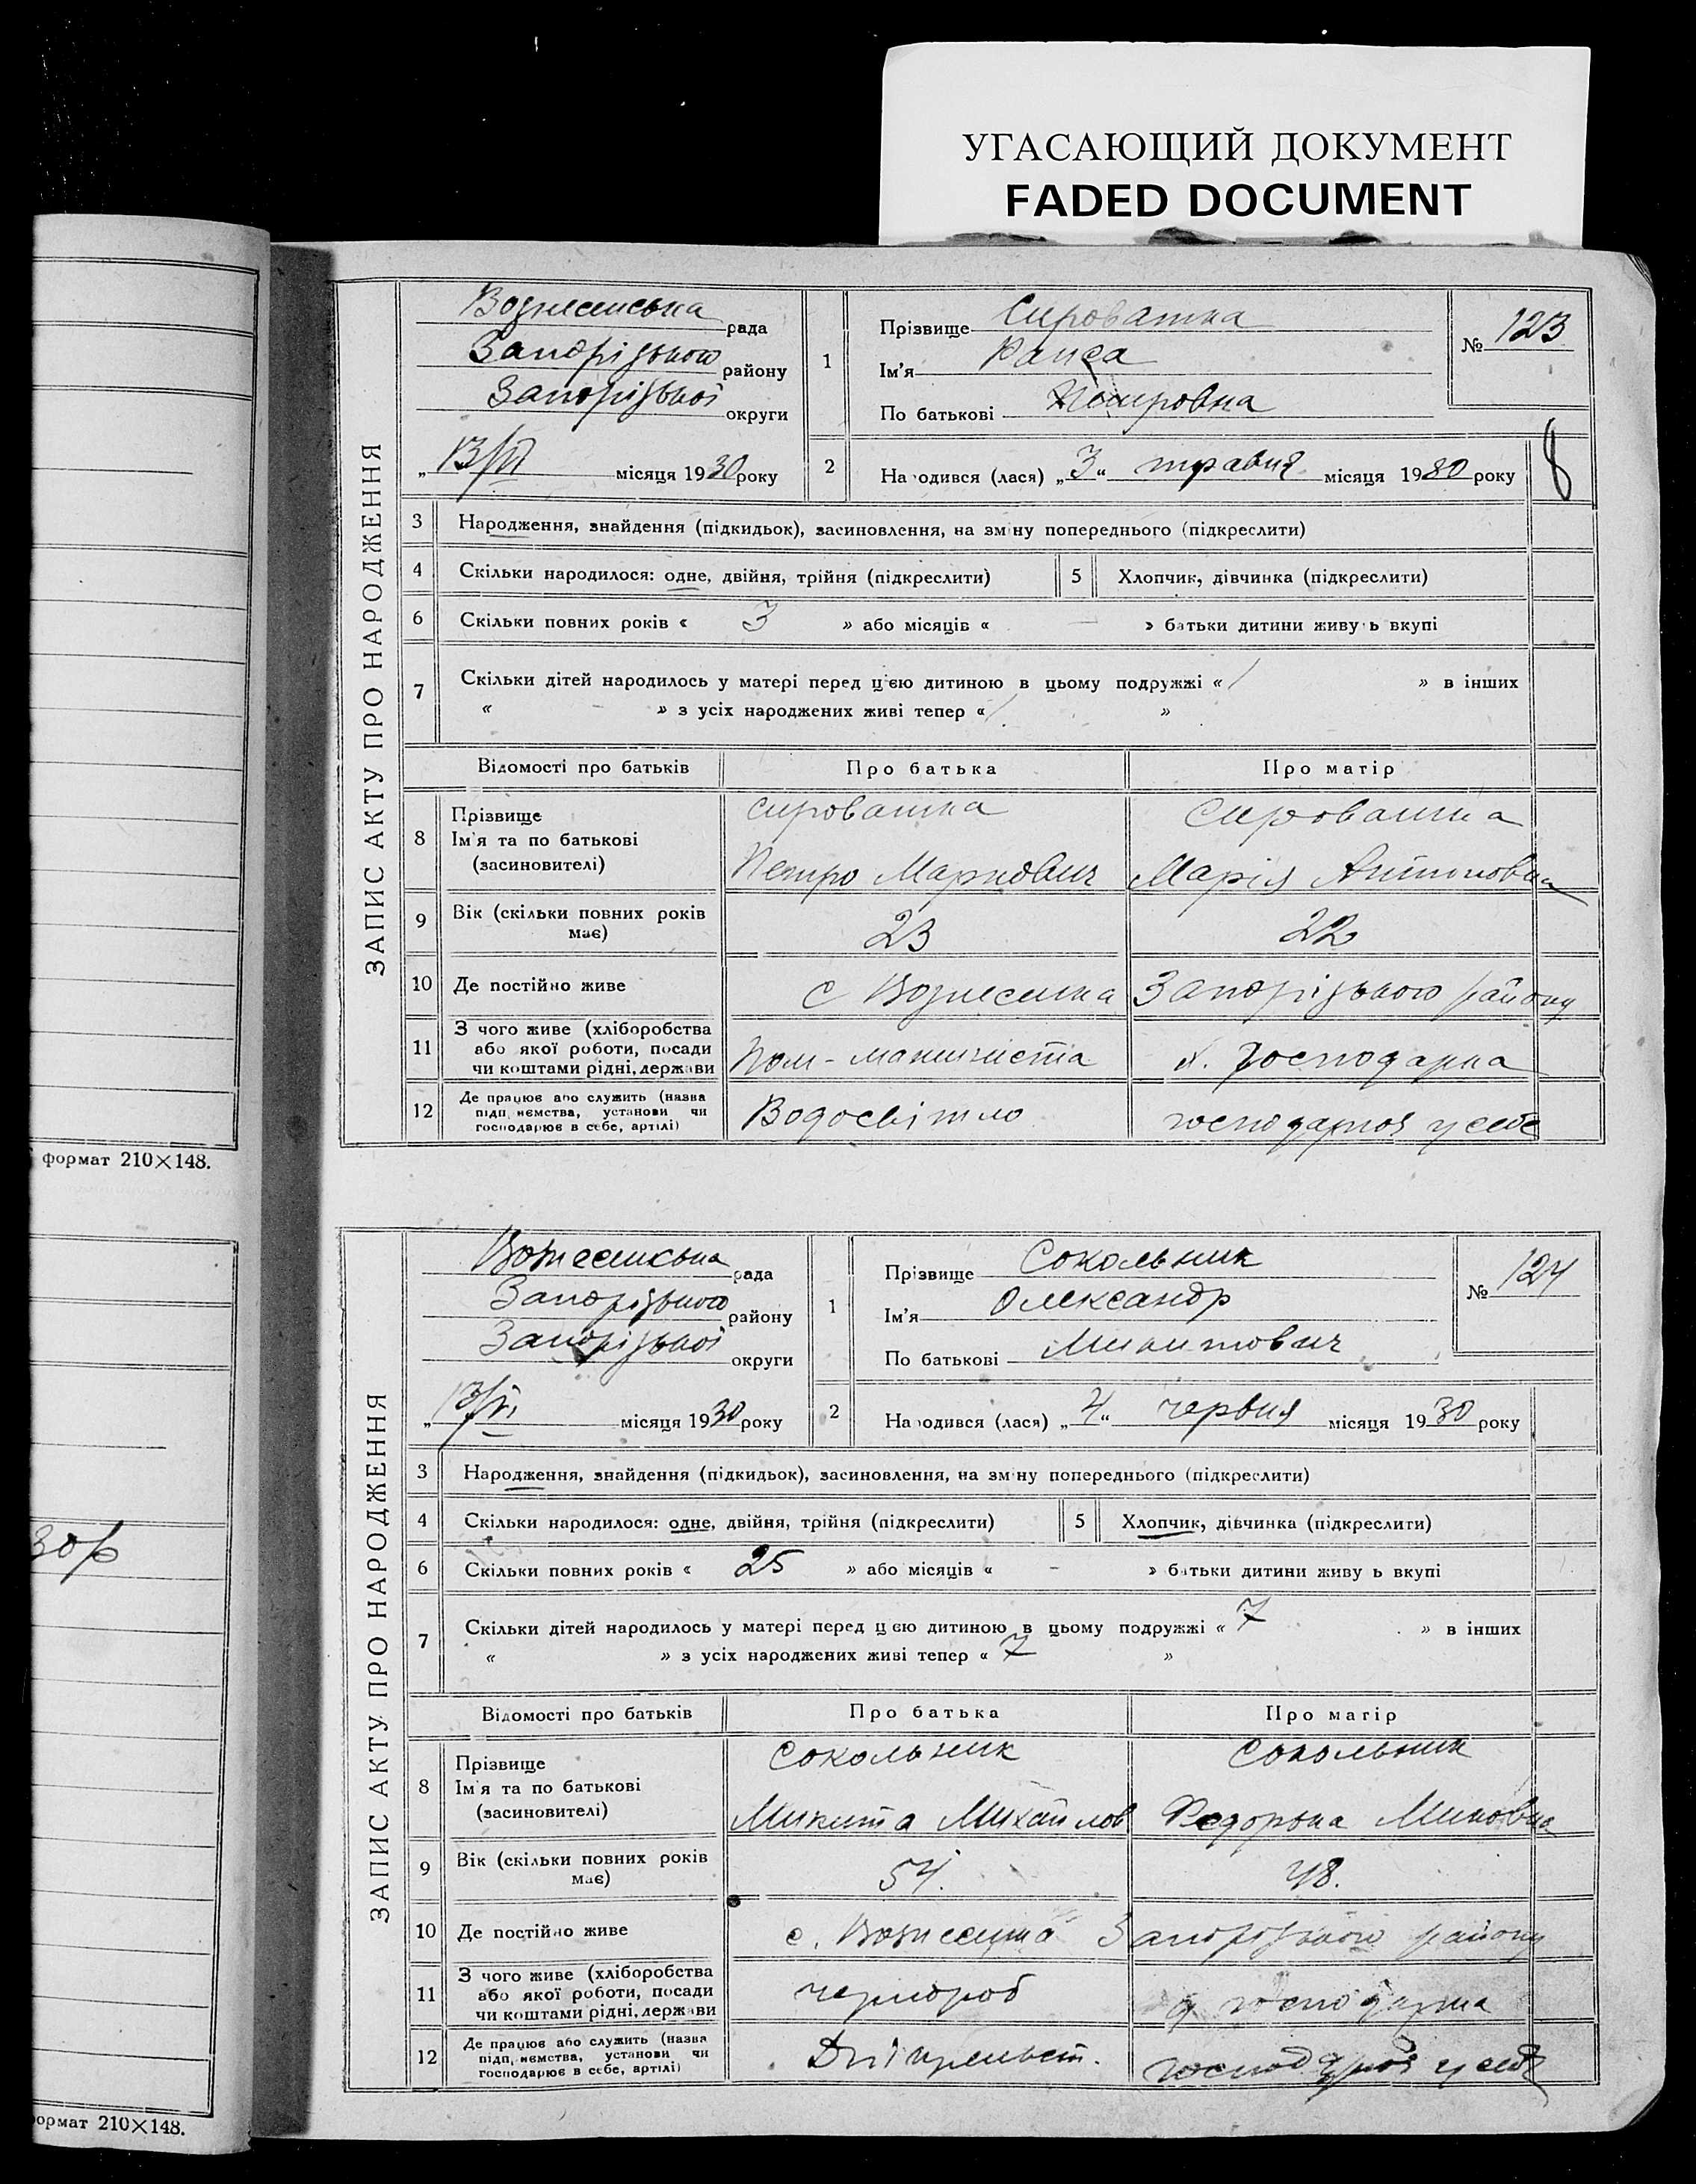 УГАСАЮЩИЙ ДОКУМЕНТ
FADED DOCUMENT
ЗАПИС АКТУ ПРО НАРОДЖЕННЯ
Вознесенська рада
Запорізького району
Запорізької округи
„13/VI місяця 1930 року
1 Прізвище Сироватка
Ім'я Раиса
По батькові Петровна
№ 123
2 На одився (лася) „3“ травня місяця 1930 року
8
3 Народження, знайдення (підкидьок), засиновлення, на зм ну попереднього (підкреслити)
4 Скільки народилося: одне, двійня, трійня (підкреслити) 5 Хлопчик, дівчинка (підкреслити)
6 Скільки повних років « 3 » або місяців « — » батьки дитини живу ь вкупі
7 Скільки дітей народилось у матері перед цією дитиною в цьому подружжі « 1 » в інших
« - » з усіх народжених живі тепер « 1 »
Відомості про батьків Про батька Про матір
8 Прізвище
Ім'я та по батькові
(засиновителі)
Сироватка
Петро Маркович
Сироватка
Марія Антоновна
9 Вік (скільки повних років має) 23 22
10 Де постійно живе с Вознесенка Запорізького району
11 З чого живе (хліборобства
або якої роботи, посади
чи коштами рідні, держави
Пом-машиніста
д. господарка
12 Де працює або служить (назва
підп, иємства, установи чи
господарює в себе, артілі)
Водосвітло
господарює у себе
формат 210×148.
30р
ормат 210×148.
ЗАПИС АКТУ ПРО НАРОДЖЕННЯ
Вознесенська рада
Запорізького району
Запорізької округи
„13/VI місяця 1930 року
1 Прізвище Сокольник
Ім'я Олександр
По батькові Микитович
№ 124
2 На одився (лася) „4“ червня місяця 1930 року
3 Народження, знайдення (підкидьок), засиновлення, на зм ну попереднього (підкреслити)
4 Скільки народилося: одне, двійня, трійня (підкреслити) 5 Хлопчик, дівчинка (підкреслити)
6 Скільки повних років « 25 » або місяців « - » батьки дитини живу ь вкупі
7 Скільки дітей народилось у матері перед цією дитиною в цьому подружжі « 7 » в інших
« » з усіх народжених живі тепер « 7 »
Відомості про батьків Про батька Про матір
8 Прізвище
Ім'я та по батькові
(засиновителі)
Сокольник
Микита Михайлов
Сокольник
Федорька Миновна
9 Вік (скільки повних років має) 54. 48.
10 Де постійно живе с. Вознесенка Запорізького району
11 З чого живе (хліборобства
або якої роботи, посади
чи коштами рідні, держави
чорнороб
д господарка
12 Де працює або служить (назва
підп, иємства, установи чи
господарює в себе, артілі)
господарює у себе